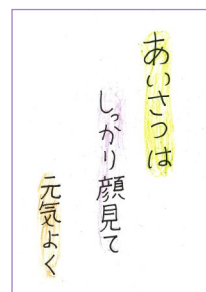 あいさつは
しっかり顔見て
元気よく